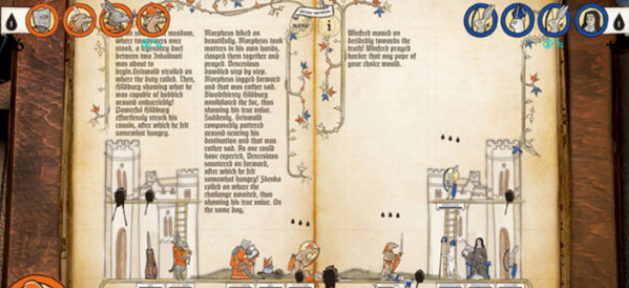 where two powers once
stood, a legendary duel
between two Inkulinati
was about to
begin. Griswald strolled on
where the duty called. Then,
Hildburg showing what he
was capable of hobbled
around unhurriedly!
Powerful Hildburg
effortlessly struck his
cousin, after which he felt
somewhat hungry.
Morpheus hiked on
beautifully. Morpheus took
matters in his own hands,
clasped them together and
prayed. Venerslaus
dawdled step by step.
Morpheus jogged forward
and that was rather sad.
Bloodthirsty Hildburg
annihilated the foe, thus
showing his true valor.
Suddenly, Griswald
composedly pottered
around nearing his
destination and that was
rather sad. As one could
have expected, Venerslaus
sauntered on forward,
after which he felt
somewhat hungry! Zdenka
rolled on where the
challenge awaited, thus
showing his true valor. On
the same day,
MENU
i
Winfred moved on
decidedly towards the
truth! Winfred prayed
harder that any pope of
your choice would.